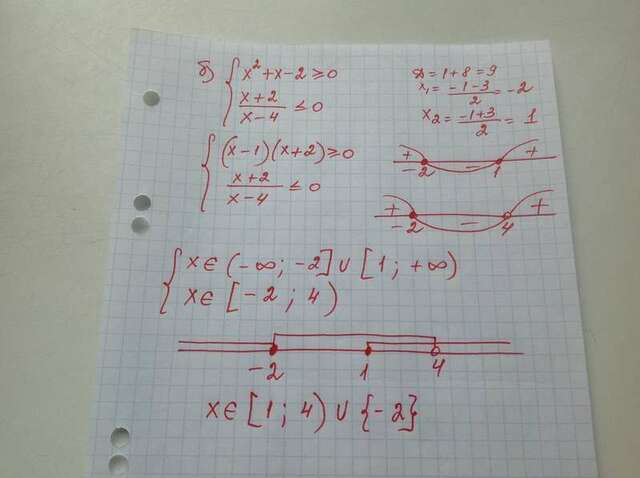 б) { x² + x - 2 ≥ 0
x+2 / x-4 ≤ 0
D = 1 + 8 = 9
x₁ = -1-3 / 2 = -2
x₂ = -1+3 / 2 = 1
{ (x-1)(x+2) ≥ 0
x+2 / x-4 ≤ 0
+ -2 - 1 +
+ -2 - 4 +
{ x ∈ (-∞; -2] ∪ [1; +∞)
x ∈ [-2; 4)
-2 1 4
x ∈ [1; 4) ∪ {-2}